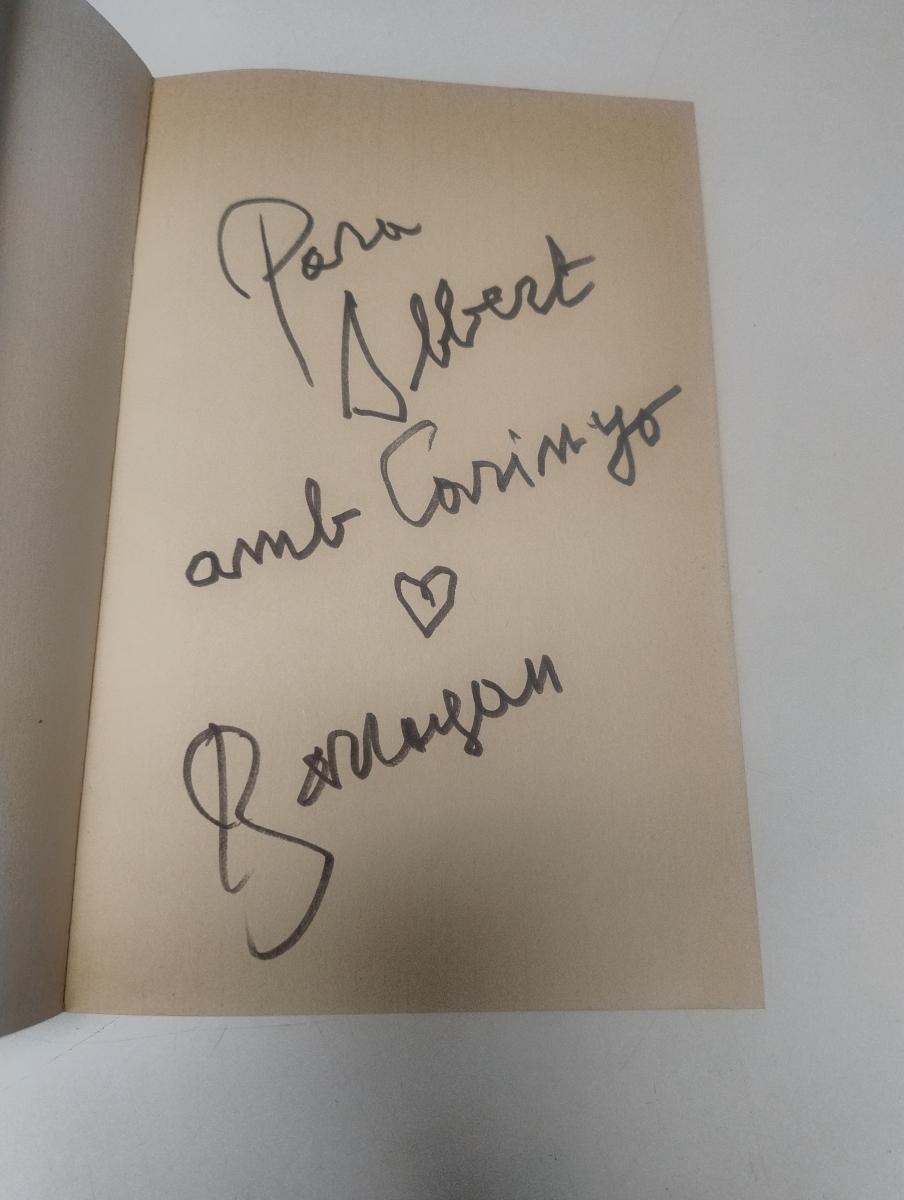 Para
Albert
amb Carinyo
♡